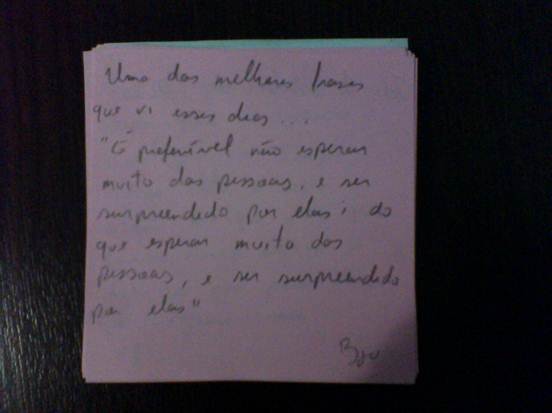 Uma das melhores frases
que vi esses dias...
"É preferível não esperar
muito das pessoas, e ser
surpreendido por elas; do
que esperar muito das
pessoas, e ser surpreendido
por elas"